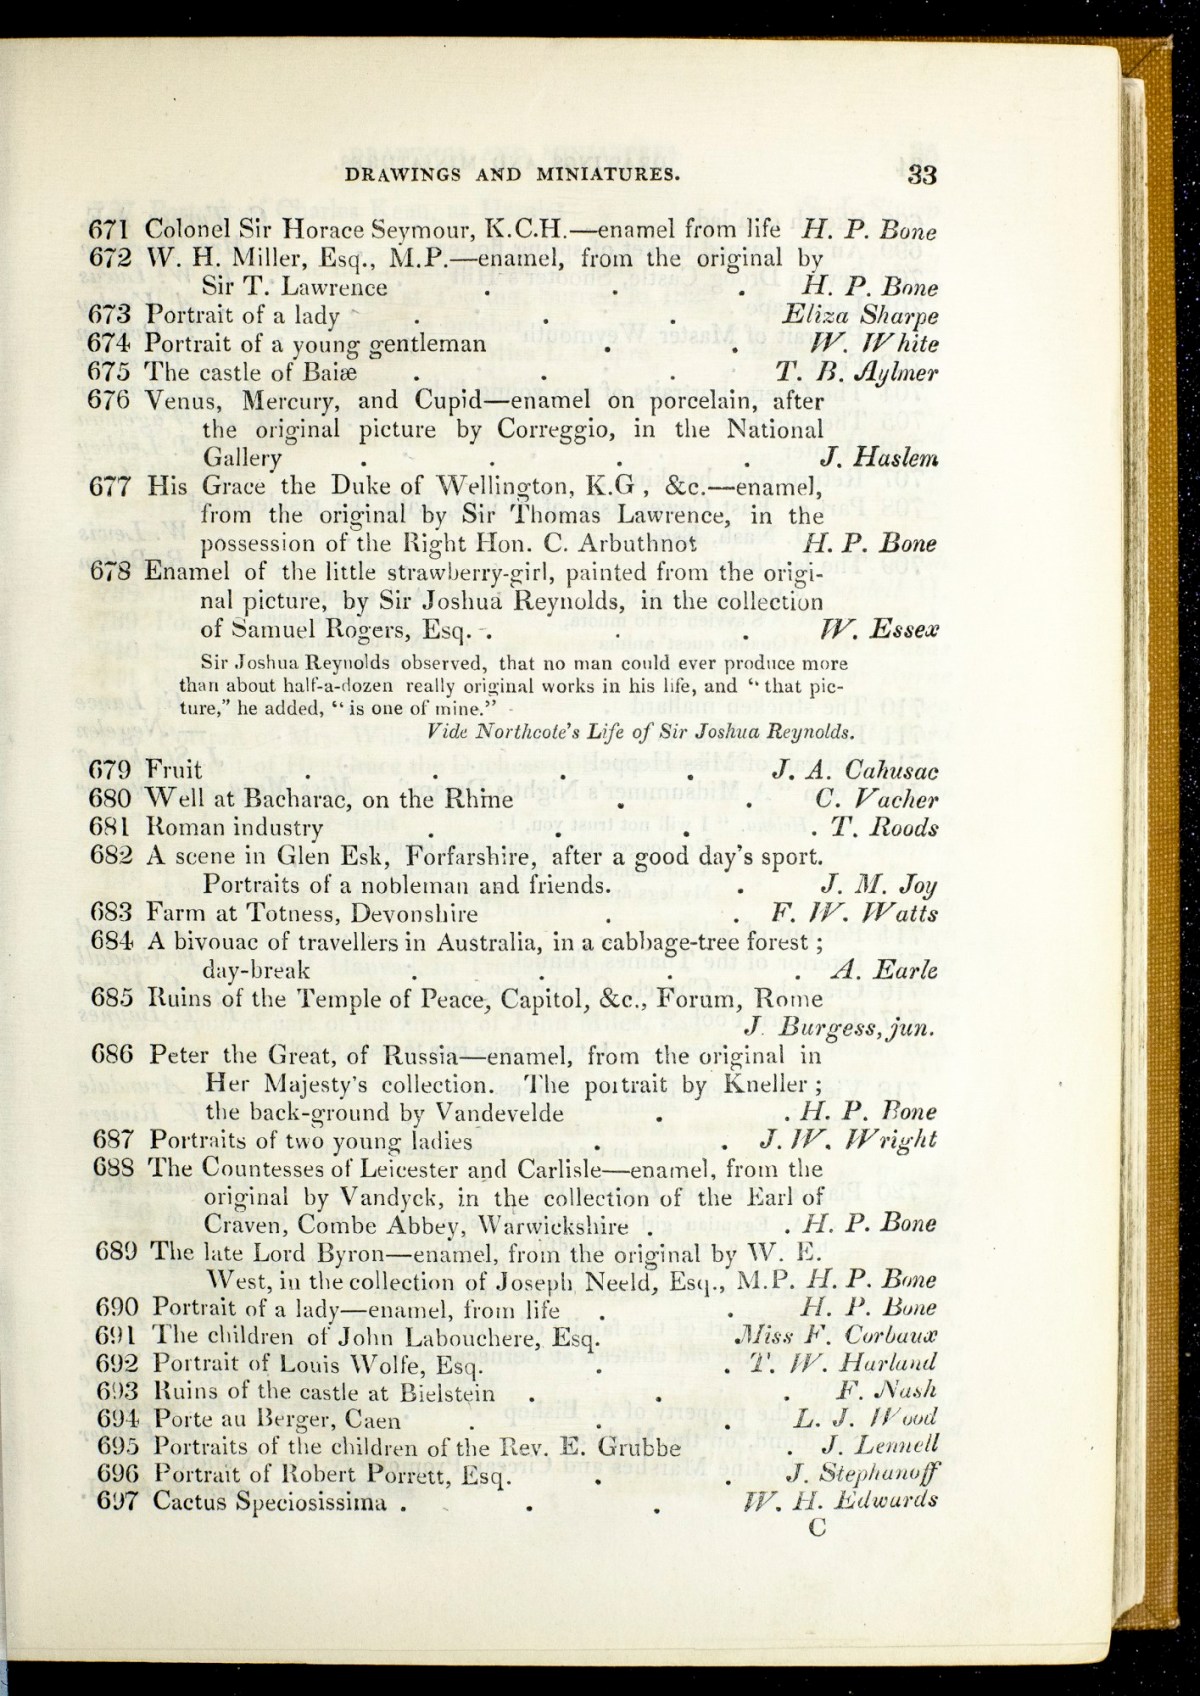 DRAWINGS AND MINIATURES. 33
671 Colonel Sir Horace Seymour, K.C.H.—enamel from life H. P. Bone
672 W. H. Miller, Esq., M.P.—enamel, from the original by
Sir T. Lawrence . . . H. P. Bone
673 Portrait of a lady . . . Eliza Sharpe
674 Portrait of a young gentleman . . W. White
675 The castle of Baiæ . . . T. B. Aylmer
676 Venus, Mercury, and Cupid—enamel on porcelain, after
the original picture by Correggio, in the National
Gallery . . . . J. Haslem
677 His Grace the Duke of Wellington, K.G , &c.—enamel,
from the original by Sir Thomas Lawrence, in the
possession of the Right Hon. C. Arbuthnot H. P. Bone
678 Enamel of the little strawberry-girl, painted from the origi-
nal picture, by Sir Joshua Reynolds, in the collection
of Samuel Rogers, Esq. . . . W. Essex
Sir Joshua Reynolds observed, that no man could ever produce more
than about half-a-dozen really original works in his life, and “ that pic-
ture,” he added, “ is one of mine.”
Vide Northcote's Life of Sir Joshua Reynolds.
679 Fruit . . . . J. A. Cahusac
680 Well at Bacharac, on the Rhine . . C. Vacher
681 Roman industry . . . . T. Roods
682 A scene in Glen Esk, Forfarshire, after a good day's sport.
Portraits of a nobleman and friends. . J. M. Joy
683 Farm at Totness, Devonshire . . F. W. Watts
684 A bivouac of travellers in Australia, in a cabbage-tree forest ;
day-break . . . . A. Earle
685 Ruins of the Temple of Peace, Capitol, &c., Forum, Rome
J. Burgess, jun.
686 Peter the Great, of Russia—enamel, from the original in
Her Majesty's collection. The portrait by Kneller ;
the back-ground by Vandevelde . . H. P. Bone
687 Portraits of two young ladies . . J. W. Wright
688 The Countesses of Leicester and Carlisle—enamel, from the
original by Vandyck, in the collection of the Earl of
Craven, Combe Abbey, Warwickshire . . H. P. Bone
689 The late Lord Byron—enamel, from the original by W. E.
West, in the collection of Joseph Neeld, Esq., M.P. H. P. Bone
690 Portrait of a lady—enamel, from life . . H. P. Bone
691 The children of John Labouchere, Esq. . Miss F. Corbaux
692 Portrait of Louis Wolfe, Esq. . . T. W. Harland
693 Ruins of the castle at Bielstein . . . F. Nash
694 Porte au Berger, Caen . . . L. J. Wood
695 Portraits of the children of the Rev. E. Grubbe . J. Lennell
696 Portrait of Robert Porrett, Esq. . . J. Stephanoff
697 Cactus Speciosissima . . . W. H. Edwards
C